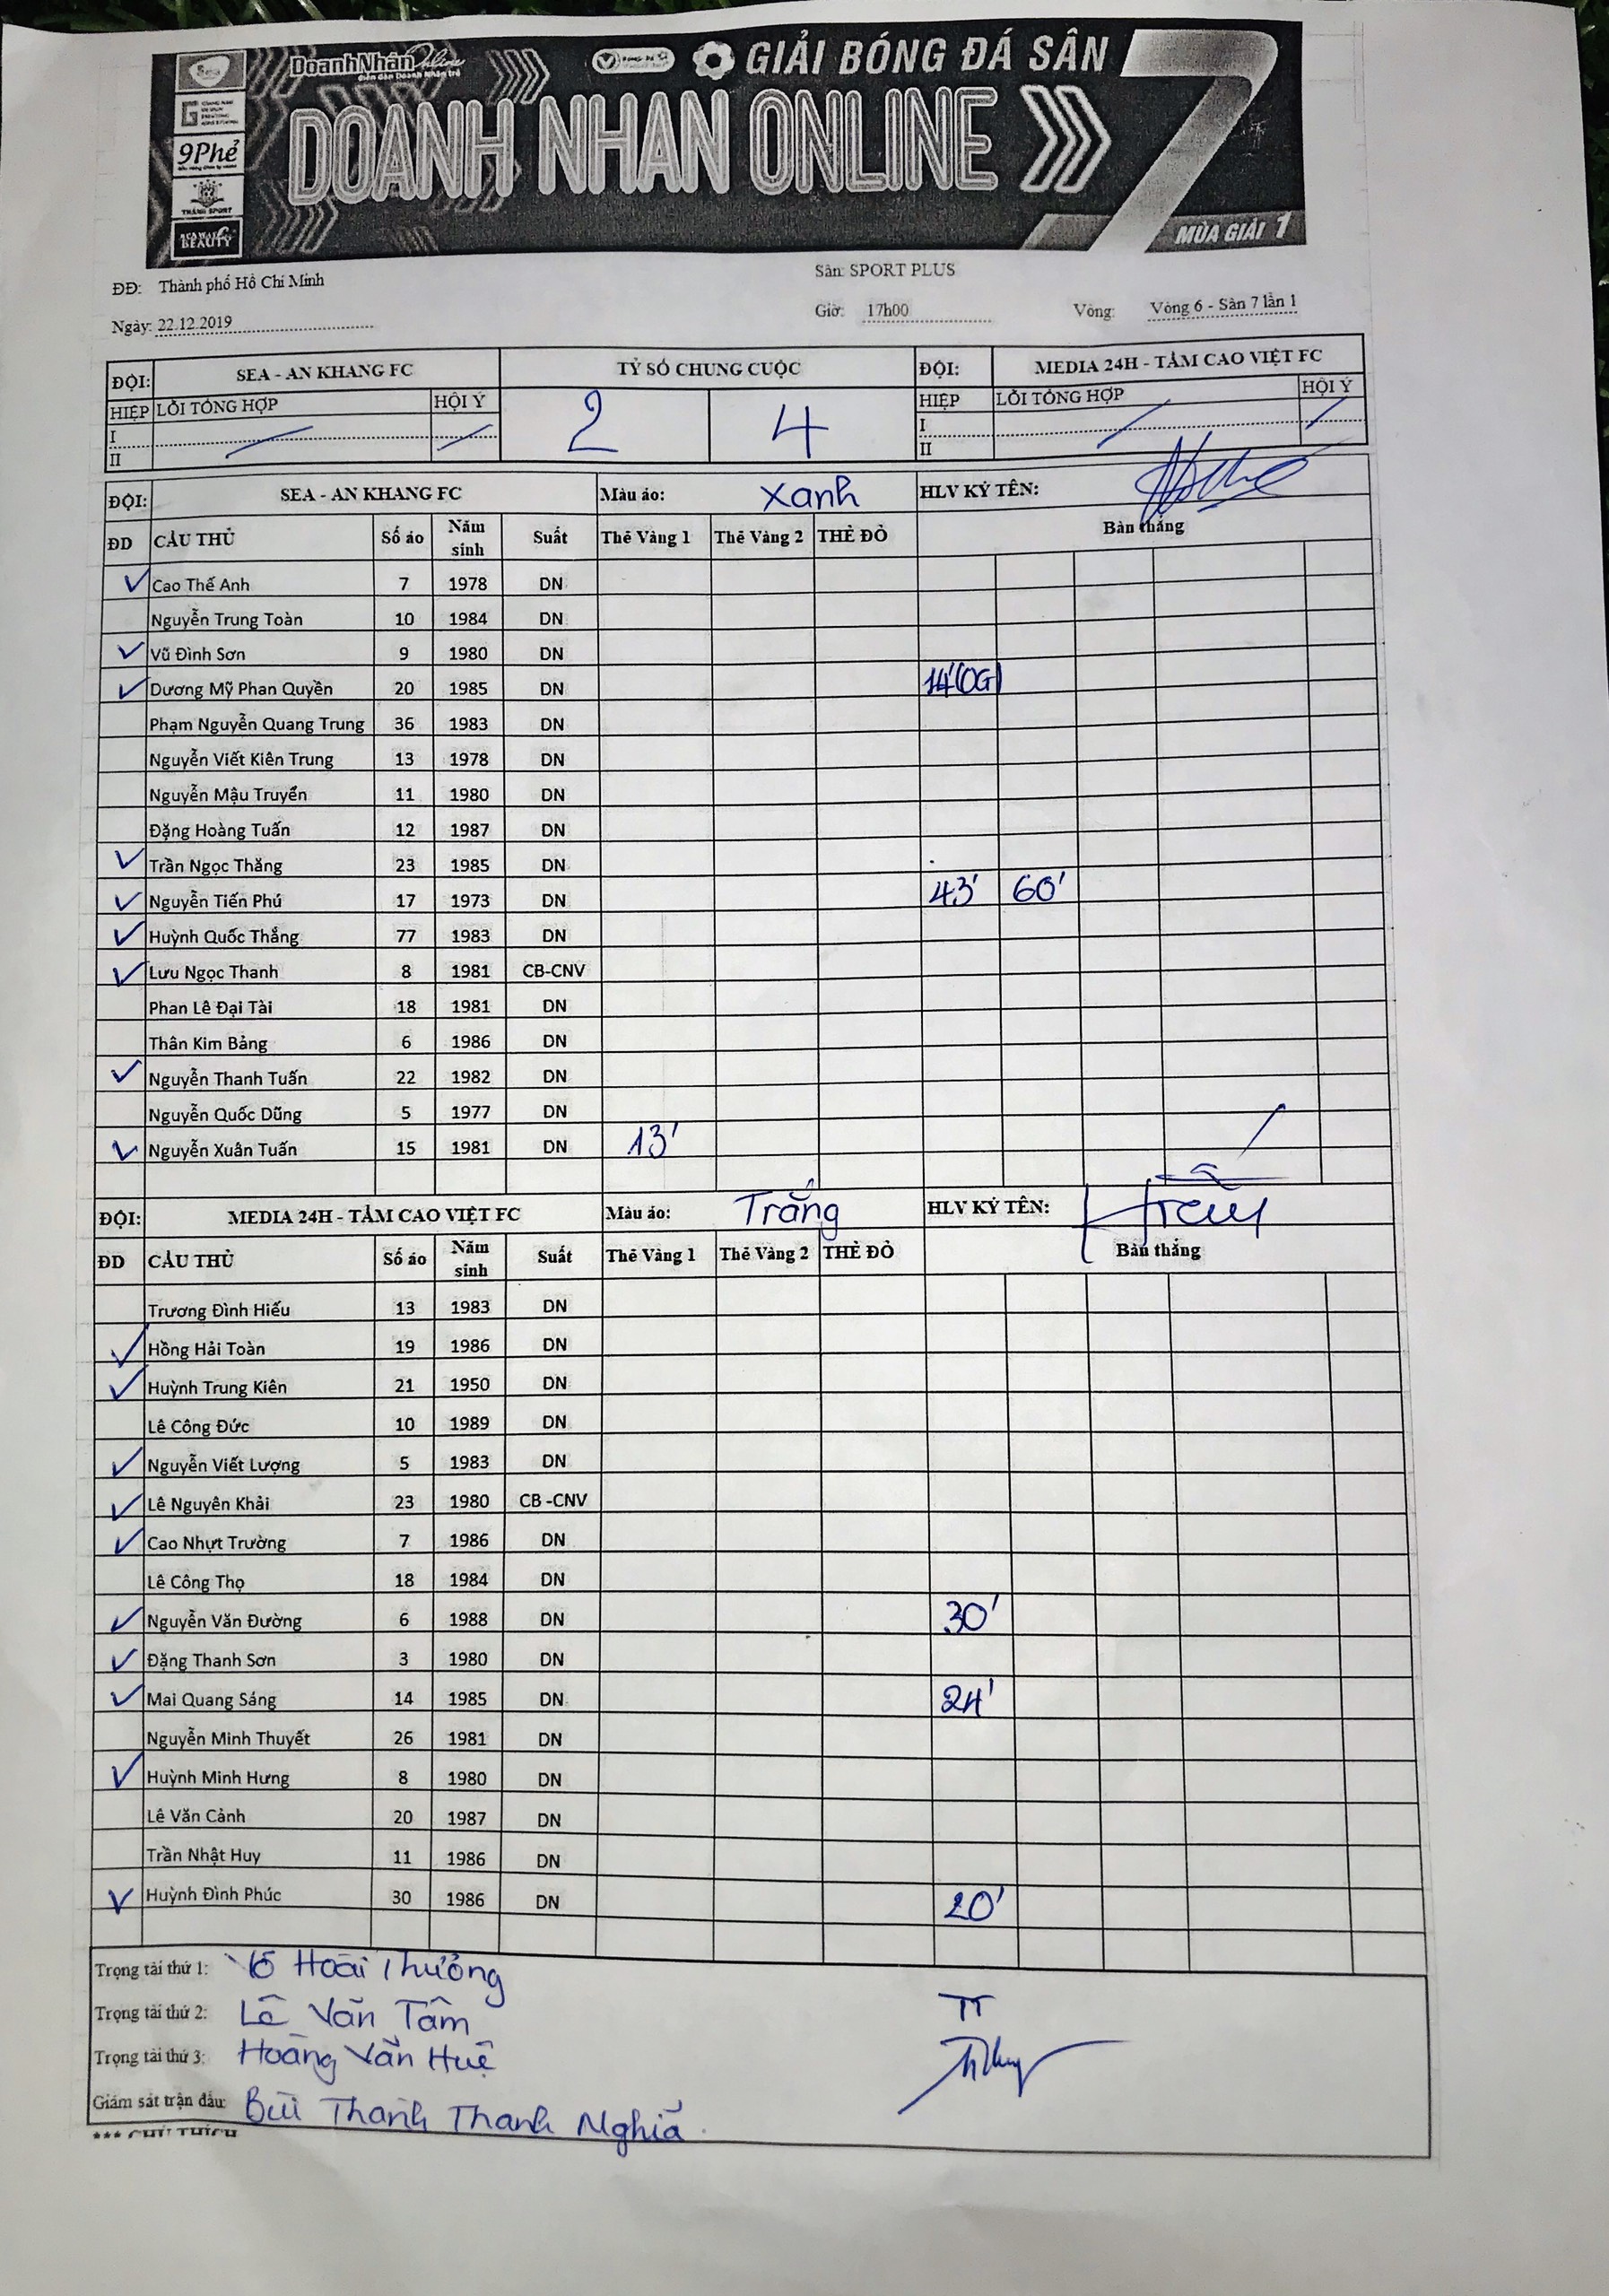 DoanhNhânOnline GIẢI BÓNG ĐÁ SÂN 7
diễn đàn Doanh Nhân trẻ
DOANH NHÂN ONLINE
9Phẻ
THÀNH SPORT
BEAUTY
MÙA GIẢI 1
ĐĐ: Thành phố Hồ Chí Minh Sân: SPORT PLUS
Ngày: 22.12.2019 Giờ: 17h00 Vòng: Vòng 6 - Sân 7 lần 1
ĐỘI: SEA - AN KHANG FC TỶ SỐ CHUNG CUỘC ĐỘI: MEDIA 24H - TẦM CAO VIỆT FC
HIỆP LỖI TỔNG HỢP HỘI Ý 2 4 HIỆP LỖI TỔNG HỢP HỘI Ý
I I
II II
ĐỘI: SEA - AN KHANG FC Màu áo: Xanh HLV KÝ TÊN:
ĐD CẦU THỦ Số áo Năm sinh Suất Thẻ Vàng 1 Thẻ Vàng 2 THẺ ĐỎ Bàn thắng
✓ Cao Thế Anh 7 1978 DN
Nguyễn Trung Toàn 10 1984 DN
✓ Vũ Đình Sơn 9 1980 DN
✓ Dương Mỹ Phan Quyền 20 1985 DN 14'(OG)
Phạm Nguyễn Quang Trung 36 1983 DN
Nguyễn Viết Kiên Trung 13 1978 DN
Nguyễn Mậu Truyển 11 1980 DN
Đặng Hoàng Tuấn 12 1987 DN
✓ Trần Ngọc Thăng 23 1985 DN
✓ Nguyễn Tiến Phú 17 1973 DN 43' 60'
✓ Huỳnh Quốc Thắng 77 1983 DN
✓ Lưu Ngọc Thanh 8 1981 CB-CNV
Phan Lê Đại Tài 18 1981 DN
Thân Kim Bảng 6 1986 DN
✓ Nguyễn Thanh Tuấn 22 1982 DN
Nguyễn Quốc Dũng 5 1977 DN
✓ Nguyễn Xuân Tuấn 15 1981 DN 13'
ĐỘI: MEDIA 24H - TẦM CAO VIỆT FC Màu áo: Trắng HLV KÝ TÊN:
ĐD CẦU THỦ Số áo Năm sinh Suất Thẻ Vàng 1 Thẻ Vàng 2 THẺ ĐỎ Bàn thắng
Trương Đình Hiếu 13 1983 DN
✓ Hồng Hải Toàn 19 1986 DN
✓ Huỳnh Trung Kiên 21 1950 DN
Lê Công Đức 10 1989 DN
✓ Nguyễn Viết Lượng 5 1983 DN
✓ Lê Nguyên Khải 23 1980 CB -CNV
✓ Cao Nhựt Trường 7 1986 DN
Lê Công Thọ 18 1984 DN
✓ Nguyễn Văn Đường 6 1988 DN 30'
✓ Đặng Thanh Sơn 3 1980 DN
✓ Mai Quang Sáng 14 1985 DN 24'
Nguyễn Minh Thuyết 26 1981 DN
✓ Huỳnh Minh Hưng 8 1980 DN
Lê Văn Cảnh 20 1987 DN
Trần Nhật Huy 11 1986 DN
✓ Huỳnh Đình Phúc 30 1986 DN 20'
Trọng tài thứ 1: Võ Hoài Thưởng
Trọng tài thứ 2: Lê Văn Tâm TT
Trọng tài thứ 3: Hoàng Văn Huệ
Giám sát trận đấu: Bùi Thanh Thanh Nghiã
*** CHÚ THÍCH